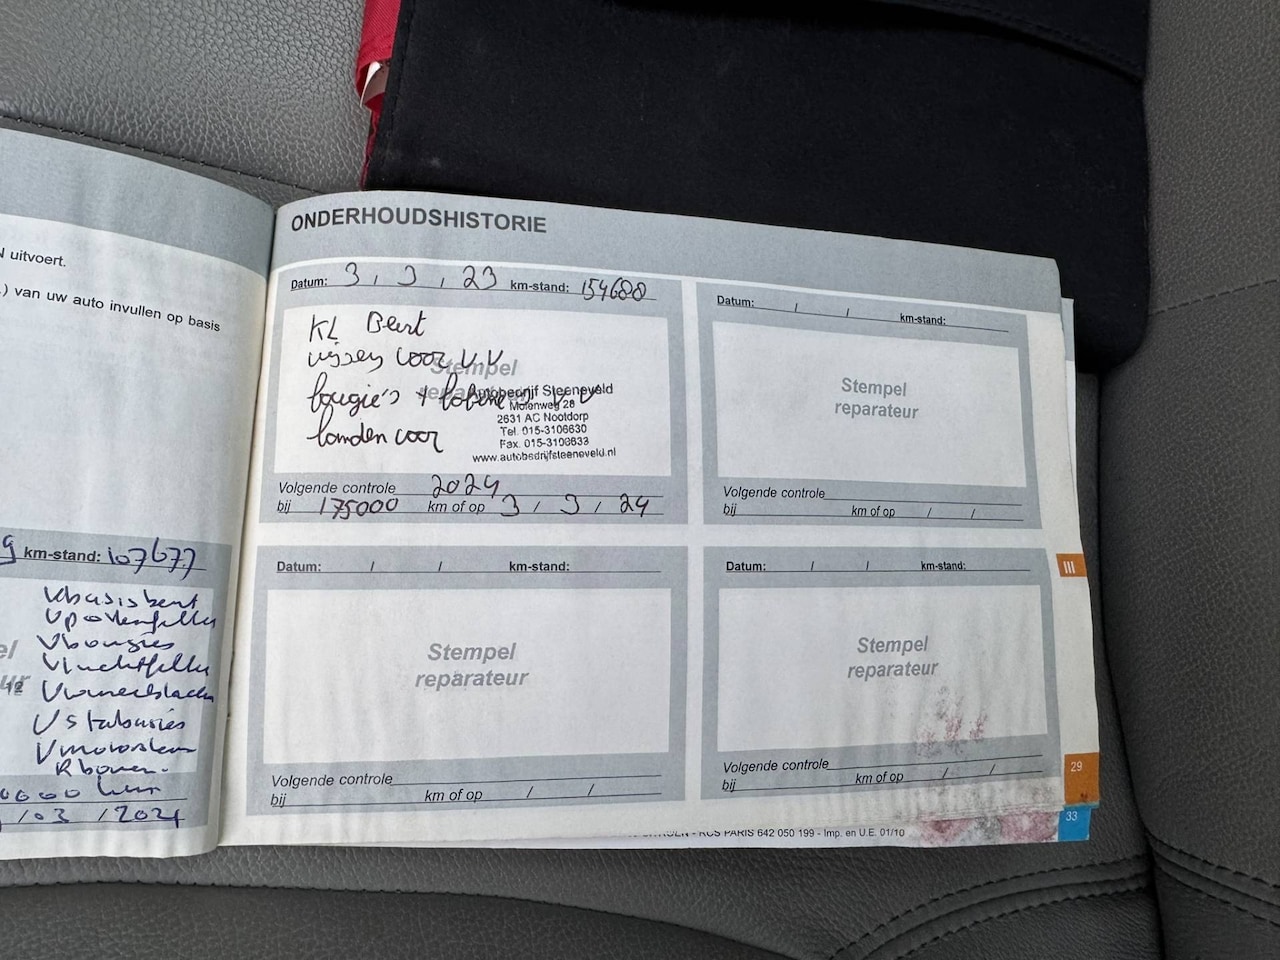 N uitvoert.
.) van uw auto invullen op basis
km-stand: 107677
V bougies
/03 / 2021
ONDERHOUDSHISTORIE
Datum: 3 / 3 / 23 km-stand: 154688
KL Beurt
wissers voor V.V
Stempel
bougie's +
banden voor
Autobedrijf Steeneveld
Molenweg 28
2631 AC Nootdorp
Tel. 015-3106630
Fax. 015-3106633
www.autobedrijfsteeneveld.nl
Volgende controle 2024
bij 175000 km of op 3 / 3 / 24
Datum: / / km-stand:
Stempel
reparateur
Volgende controle
bij km of op / /
Datum: / / km-stand:
Stempel
reparateur
Volgende controle
bij km of op / /
Datum: / / km-stand:
Stempel
reparateur
Volgende controle
bij km of op / /
III
29
33
- RCS PARIS 642 050 199 - Imp. en U.E. 01/10